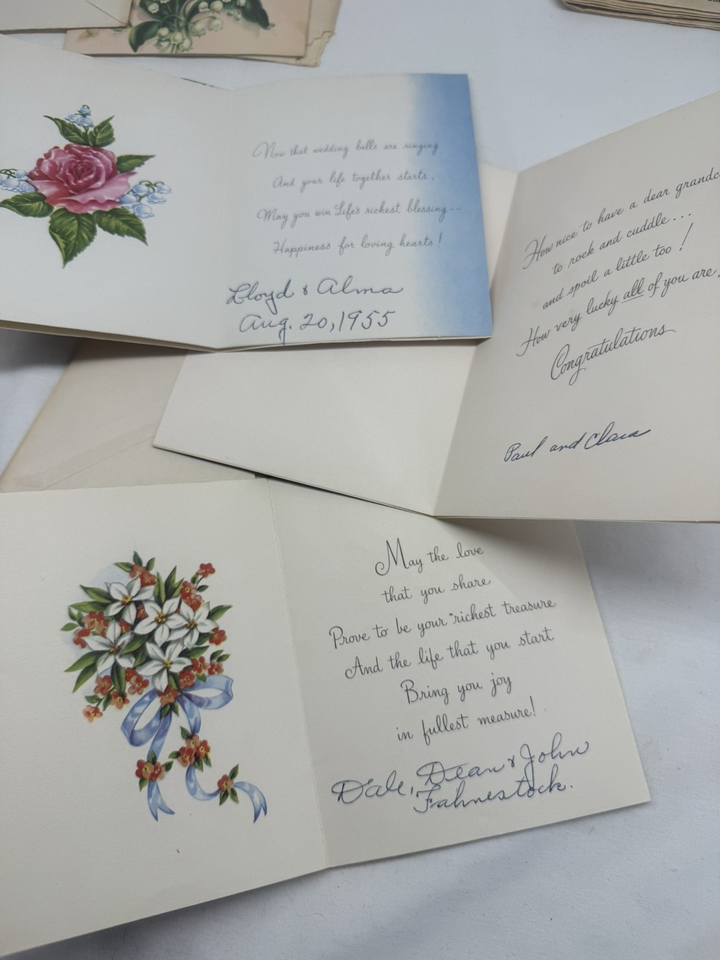 Now that wedding bells are ringing
And your life together starts,
May you win Life's richest blessing--
Happiness for loving hearts!
Lloyd & Alma
Aug. 20, 1955
How nice to have a dear
to rock and cuddle...
and spoil a little too!
How very lucky all of you are
Congratulations
Paul and Clara
May the love
that you share
Prove to be your richest treasure
And the life that you start
Bring you joy
in fullest measure!
Dale, Dean & John
Fahnestock.